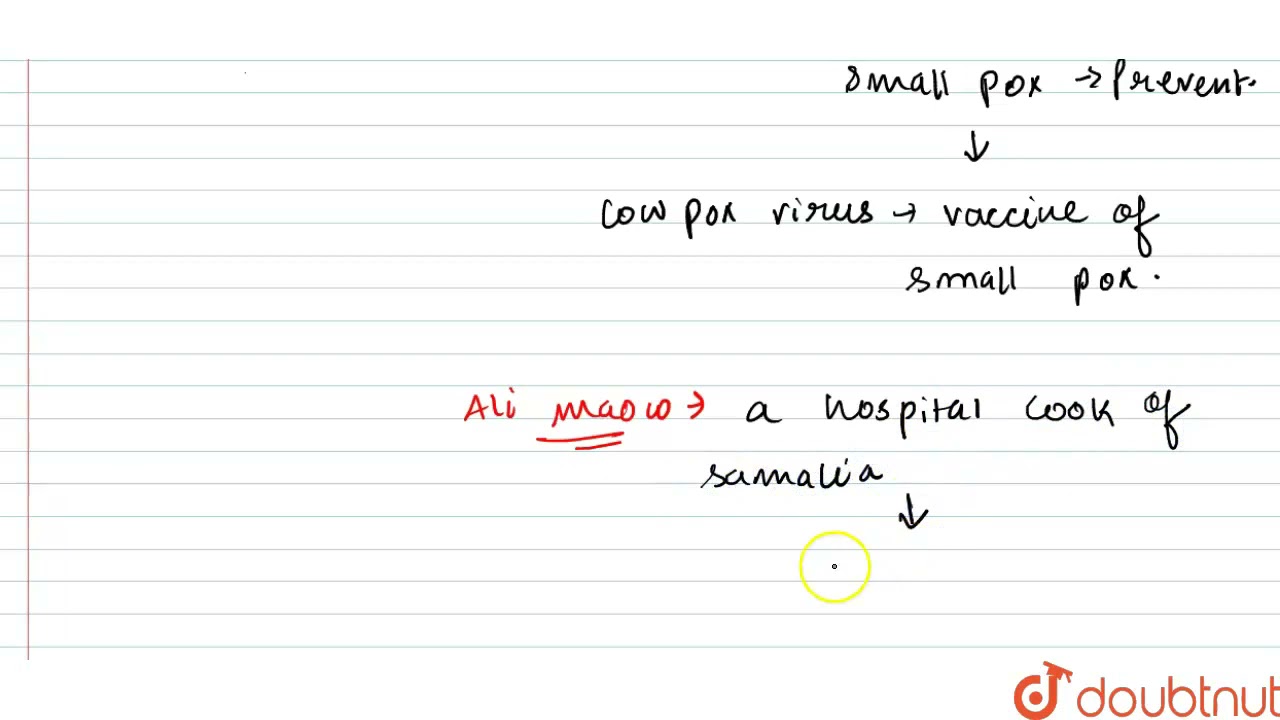 small pox → Prevent.
↓
cow pox virus → vaccine of
small pox.
Ali maow → a hospital cook of
samalia
↓
doubtnut